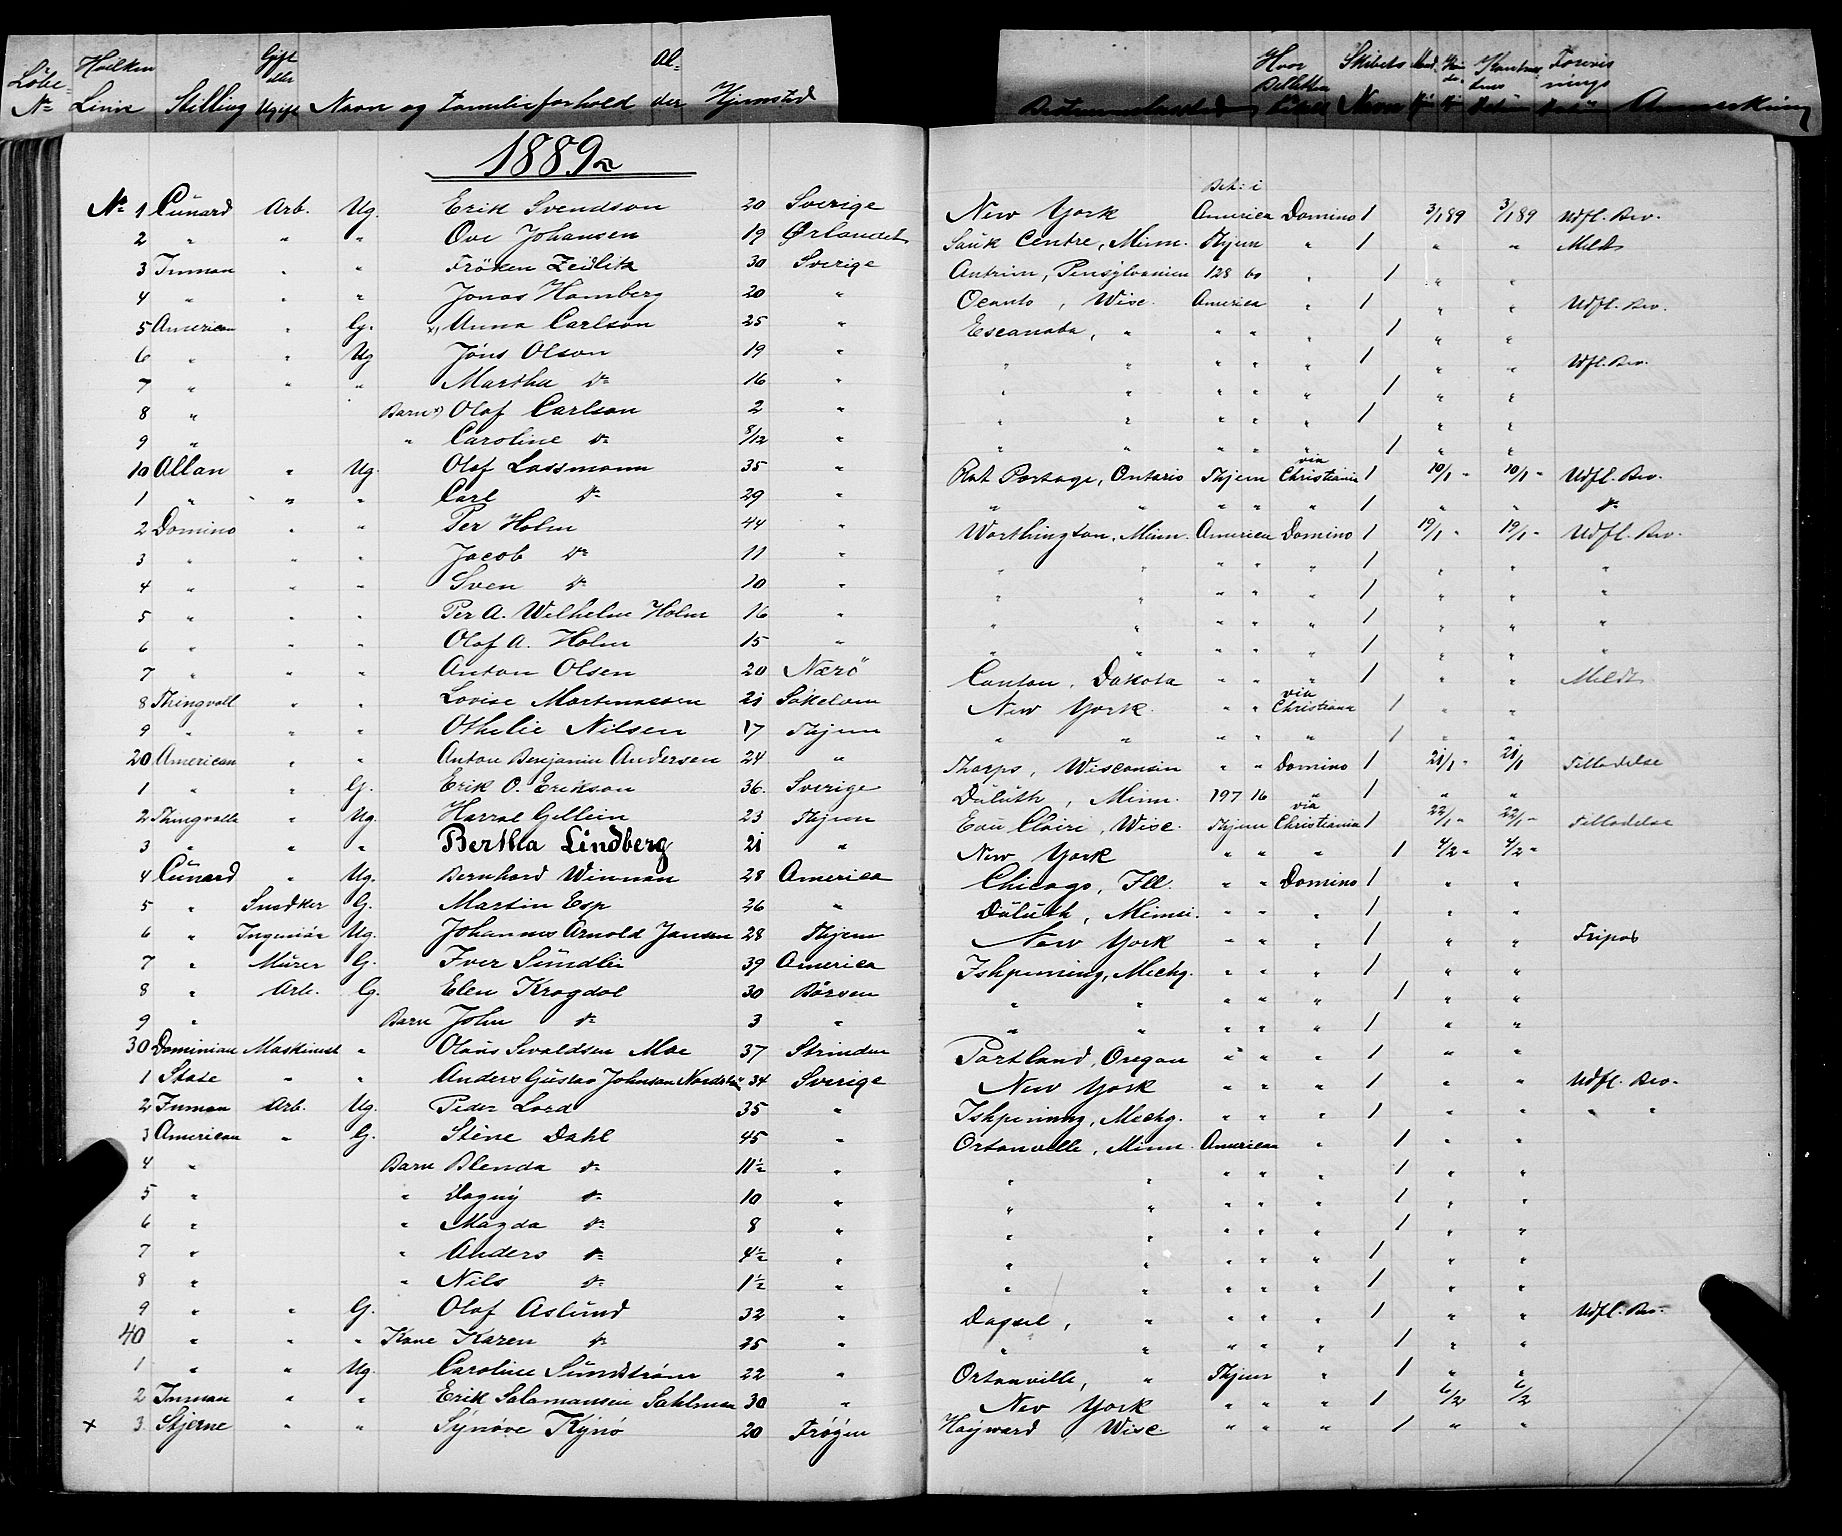 Löbe- No Hvilken Linie Stilling Gift eller Ugift Navn og Familieforhold Al- der Hjemsted Bestemmelsested Hvor Billetten Skibets Navn Anmerkning
1889
Bet. i
No 1 Cunard Arb. Ug. Erik Svendson 20 Sverige New York America Domino 1 3/1 89 3/1 89 Udfl. Bev.
2 " " " Ove Johansen 19 Ørlandet Sauk Centre, Minn. Thjem " 1 " " Meldt
3 Inman " " Fröken Zedlitz 30 Sverige Antrim, Pensylvanien 128 60 " 1 " "
4 " " " Jonas Hamberg 20 " Oconto, Wisc. America " 1 " " Udfl. Bev.
5 American " G. x) Anna Carlson 25 " Escanaba, " " " 1 " "
6 " " Ug Jöns Olson 19 " " " " " " 1 " " Udfl. Bev.
7 " " " Martha do 16 " " " " " " 1 " "
8 " Barn x) Olof Carlson 2 " " " " " " 1 " "
9 " " Caroline do 8/12 " " " " " " 1 " "
10 Allan " Ug. Olof Lassmann 35 " Rat Portage, Ontario Thjem via Christiania 1 10/1 " 10/1 " Udfl. Bev.
1 " " " Carl do 29 " " " " " " 1 " " do
2 Domino " " Per Holm 44 " Worthington, Minn. America Domino 1 19/1 " 19/1 " Udfl. Bev.
3 " " " Jacob do 11 " " " " " " 1 " " "
4 " " " Sven do 10 " " " " " " 1 " " "
5 " " " Per A. Wilhelm Holm 16 " " " " " " 1 " " "
6 " " " Olof A. Holm 15 " " " " " " 1 " " "
7 " " " Anton Olsen 20 Nærö Canton, Dakota " " " 1 " " Meldt
8 Thingvall " " Lovise Martinussen 21 New York " " via Christiania 1 " "
9 " " " Othelie Nilsen 17 Thjem " " " " " 1 " "
20 American " " Anton Benjamin Andersen 24 " Thorps, Wisconsin " " Domino 1 21/1 " 21/1 Tilladelse
1 " " G. Erik O. Erikson 36. Sverige Duluth, Minn. 197 16 " 1 " "
2 Thingvalla " Ug. Gellein 23 Thjem Eau Claire, Wisc. Thjem via Christiania 1 22/1 " 22/1 " Tilladelse
3 " " " Bertha Lindberg 21 " New York " " " 1 4/2 " 4/2 "
4 Cunard " Ug. Bernhard Winman 28 America Chicago, Ill. " " Domino 1 " "
5 " Snedker G. Martin Esp 26 " Duluth, " " " 1 " "
6 " Ingeniör Ug. Johannes Arnold Jansen 28 Thjem New York " " " 1 " " Fripas
7 " Murer G. Iver Sundli 39 America Ishpeming, Michg. " " " 1 " "
8 " Arb. G. Elen Krogdal 30 Börsen " " " " " 1 " "
9 " Barn John do 3 " " " " " " 1 " "
30 Dominian Maskinist " Olaus Sivaldsen Moe 37 Strinden Portland, Oregon " " " 1 " "
1 State " " Anders Gustav Johnson 34 Sverige New York " " " 1 " " Udfl. Bev.
2 Inman Arb. Ug. Peder Lord 35 " Ishpeming, Michg. " " " 1 " " " "
3 American " G. Stine Dahl 45 " Ortonville, Minn. American " 1 " "
4 " Barn Blenda do 11½ " " " " " " 1 " "
5 " " Dagny do 10 " " " " " " 1 " "
6 " " Magda do 8 " " " " " " 1 " "
7 " " Anders do 4½ " " " " " " 1 " "
8 " " Nils do 1½ " " " " " " 1 " "
9 " " G. Olof Aslund 32 " Dassel, " " " " 1 " " Udfl. Bev.
40 " " " Kone Karen do 25 " " " " " " 1 " "
1 " " Ug. Caroline Sundström 22 " Ortonville, " Thjem " 1 " "
2 Inman " " Erik Salamansen Sahlman 30 " New York " " " 1 6/2 6/2
x 3 Stjerne " " Synöve Kynö 20 Fröyen Hayward, Wisc " " " 1 " "